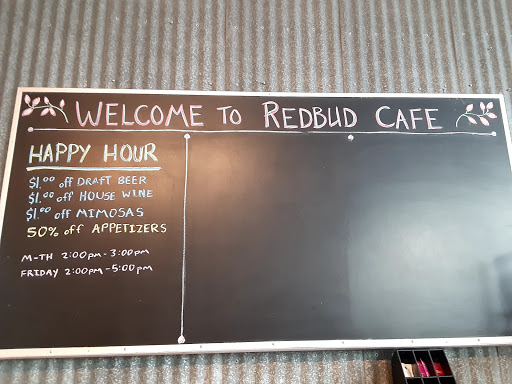 WELCOME TO REDBUD CAFE
HAPPY HOUR
$1.00 off DRAFT BEER
$1.00 off HOUSE WINE
$1.00 off MIMOSAS
50% off APPETIZERS
M-TH 2:00pm-3:00pm
FRIDAY 2:00pm-5:00pm